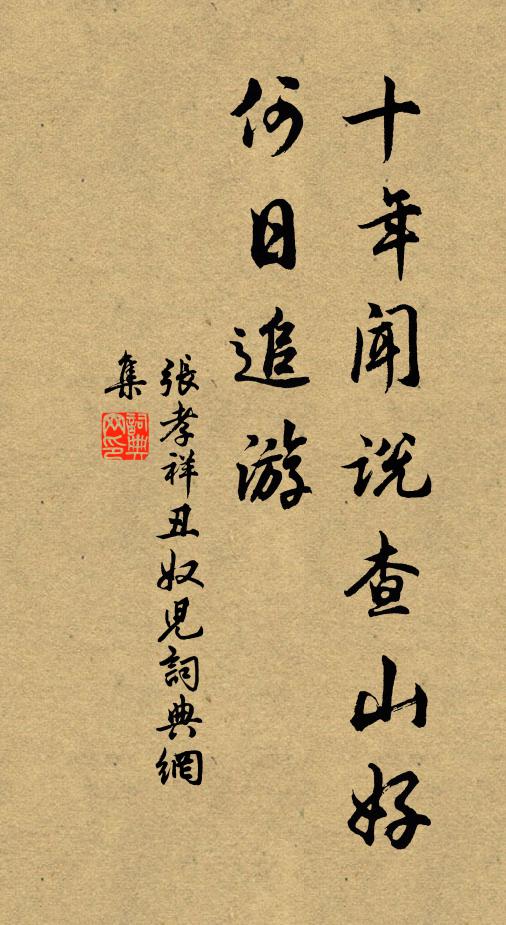 十年闻说查山好
何日追游
張孝祥丑奴兒詞典網
集
詞典網印